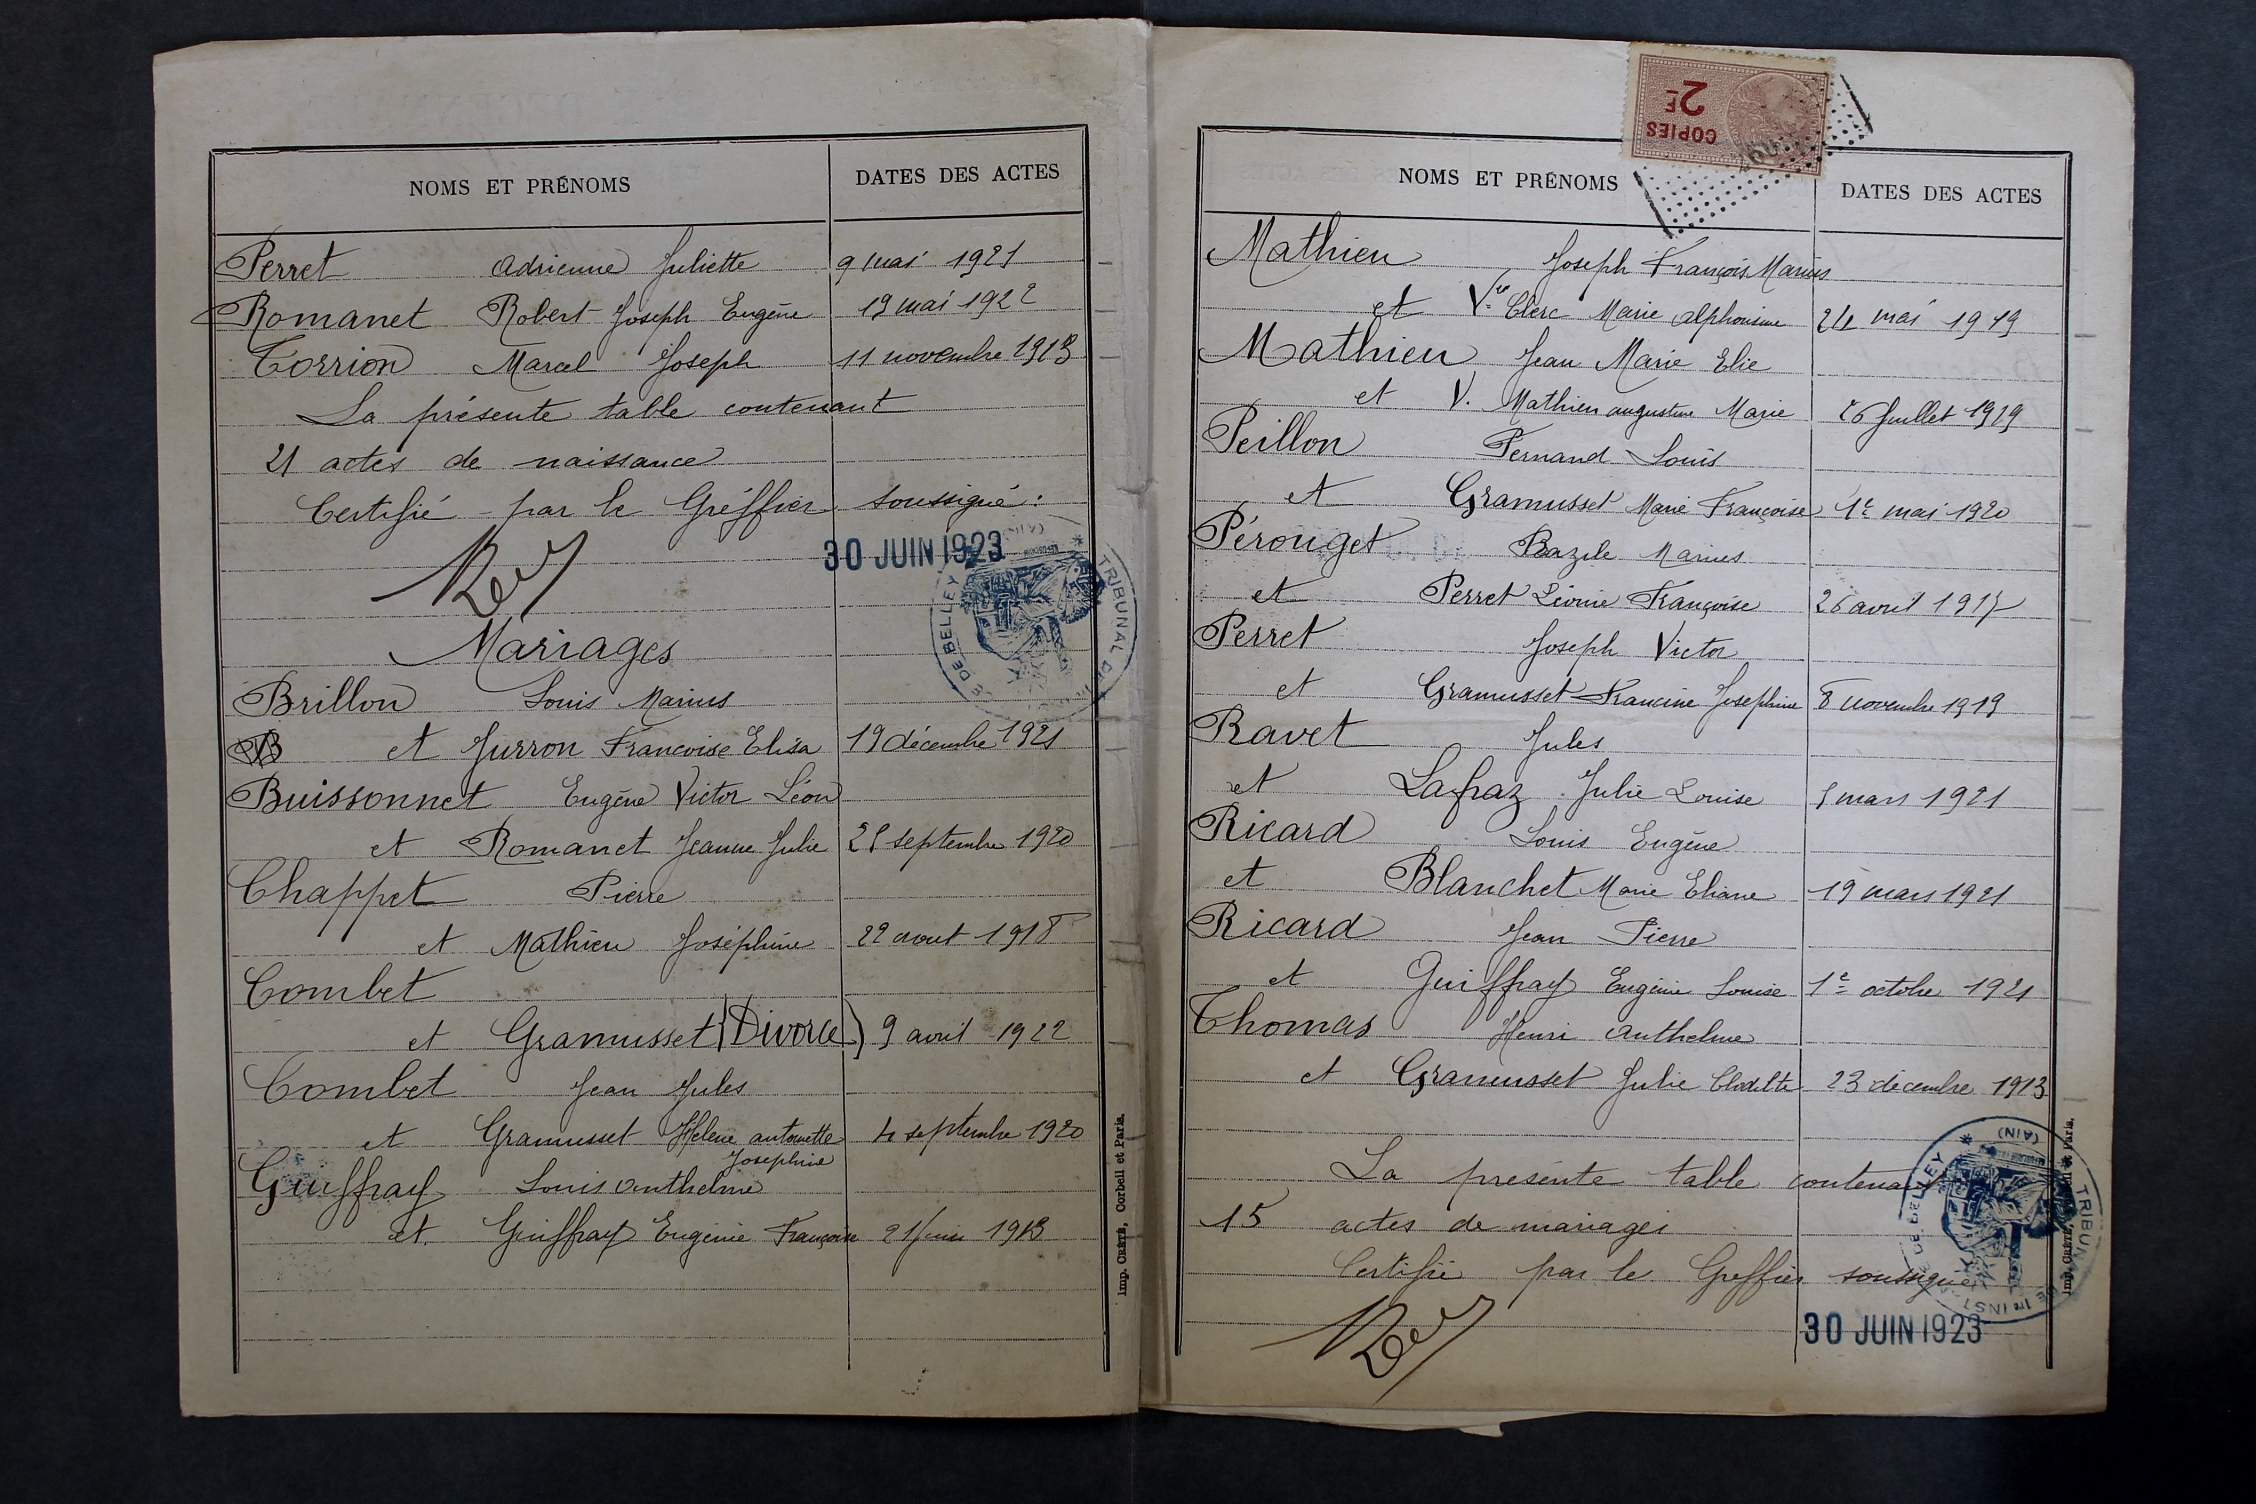 NOMS ET PRÉNOMS DATES DES ACTES
Perret Adrienne Juliette 9 mai 1921
Romanet Robert Joseph Eugène 19 mai 1922
Torrion Marcel Joseph 11 novembre 1913
La présente table contenant
21 actes de naissance
Certifié par le Gréffier soussigné :
30 JUIN 1923
TRIBUNAL DE BELLEY (AIN)
Mariages
Brillon Louis Marius
et Jurron Francoise Elisa 19 décembre 1921
Buissonnet Eugène Victor Léon
et Romanet Jeanne Julie 25 septembre 1920
Chappet Pierre
et Mathieu Joséphine 22 aout 1918
Combet
et Gramusset (Divorce) 9 avril 1922
Combet Jean Jules
et Gramusset Hélène antoinette 4 septembre 1920
Josephine
Guiffray Louis Anthelme
et Guiffray Eugénie Françoise 21 juin 1913
Imp. CRÉTÉ, Corbeil et Paris.
COPIES
2F
NOMS ET PRÉNOMS DATES DES ACTES
Mathieu Joseph François Marius
et Vve Clerc Marie Alphonsine 24 mai 1919
Mathieu Jean Marie Elie
et V. Mathieu augustine Marie 26 Juillet 1919
Peillon Fernand Louis
et Gramusset Marie Françoise 1e mai 1920
Pérouget Bazile Marius
et Perret Léonie Françoise 26 avril 1917
Perret Joseph Victor
et Gramusset Francine Josephine 8 novembre 1919
Ravet Jules
et Lafraz Julie Louise 5 mars 1921
Ricard Louis Eugène
et Blanchet Marie Eliane 19 mars 1921
Ricard Jean Pierre
et Guiffray Eugénie Louise 1e octobre 1921
Thomas Henri Anthelme
et Gramusset Julie Clotilde 23 décembre 1913
La présente table contenant
15 actes de mariages
Certifié par le Greffier soussigné
TRIBUNAL DE 1re INST DE BELLEY (AIN)
30 JUIN 1923